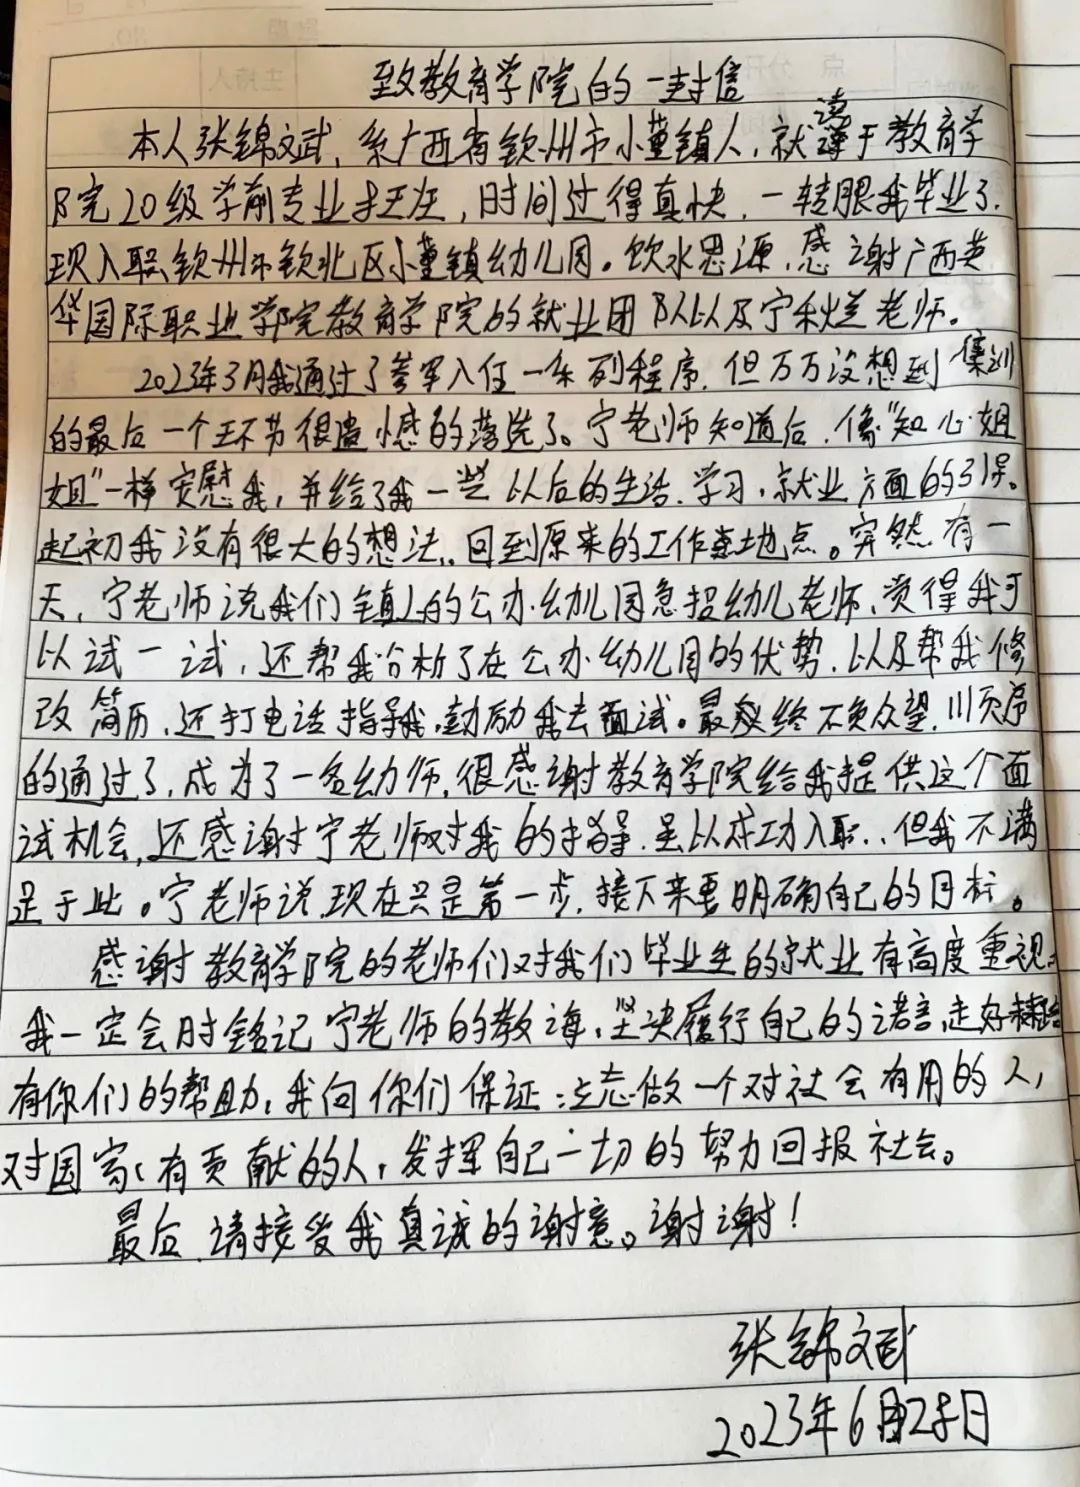 致教育学院的一封信
本人张锦斌，系广西省钦州市小董镇人，就读于教育学
院20级学前专业，时间过得真快，一转眼我毕业了，
现入职钦州市钦北区小董镇幼儿园。饮水思源，感谢广西英
华国际职业学院教育学院的就业团队以及宁秋兰老师。
2023年3月我通过了参军入伍一系列程序，但万万没想到集训
的最后一个环节很遗憾的落选了。宁老师知道后，像"知心姐
姐"一样安慰我，并给了我一些以后的生活、学习、就业方面的引导。
起初我没有很大的想法，回到原来的工作地点。突然有一
天，宁老师说我们镇上的公办幼儿园急招幼儿老师，觉得我可
以试一试，还帮我分析了在公办幼儿园的优势，以及帮我修
改简历，还打电话指导我，鼓励我去面试。最终不负众望，顺序
的通过了，成为了一名幼师，很感谢教育学院给我提供这个面
试机会，还感谢宁老师对我的指导，足以成功入职，但我不满
足于此。宁老师说，现在只是第一步，接下来要明确自己的目标。
感谢教育学院的老师们对我们毕业生的就业有高度重视，
我一定会时铭记宁老师的教诲，坚决履行自己的诺言，走好
有你们的帮助，我向你们保证：立志做一个对社会有用的人，
对国家有贡献的人，发挥自己一切的努力回报社会。
最后，请接受我真诚的谢意。谢谢！
张锦斌
2023年6月28日